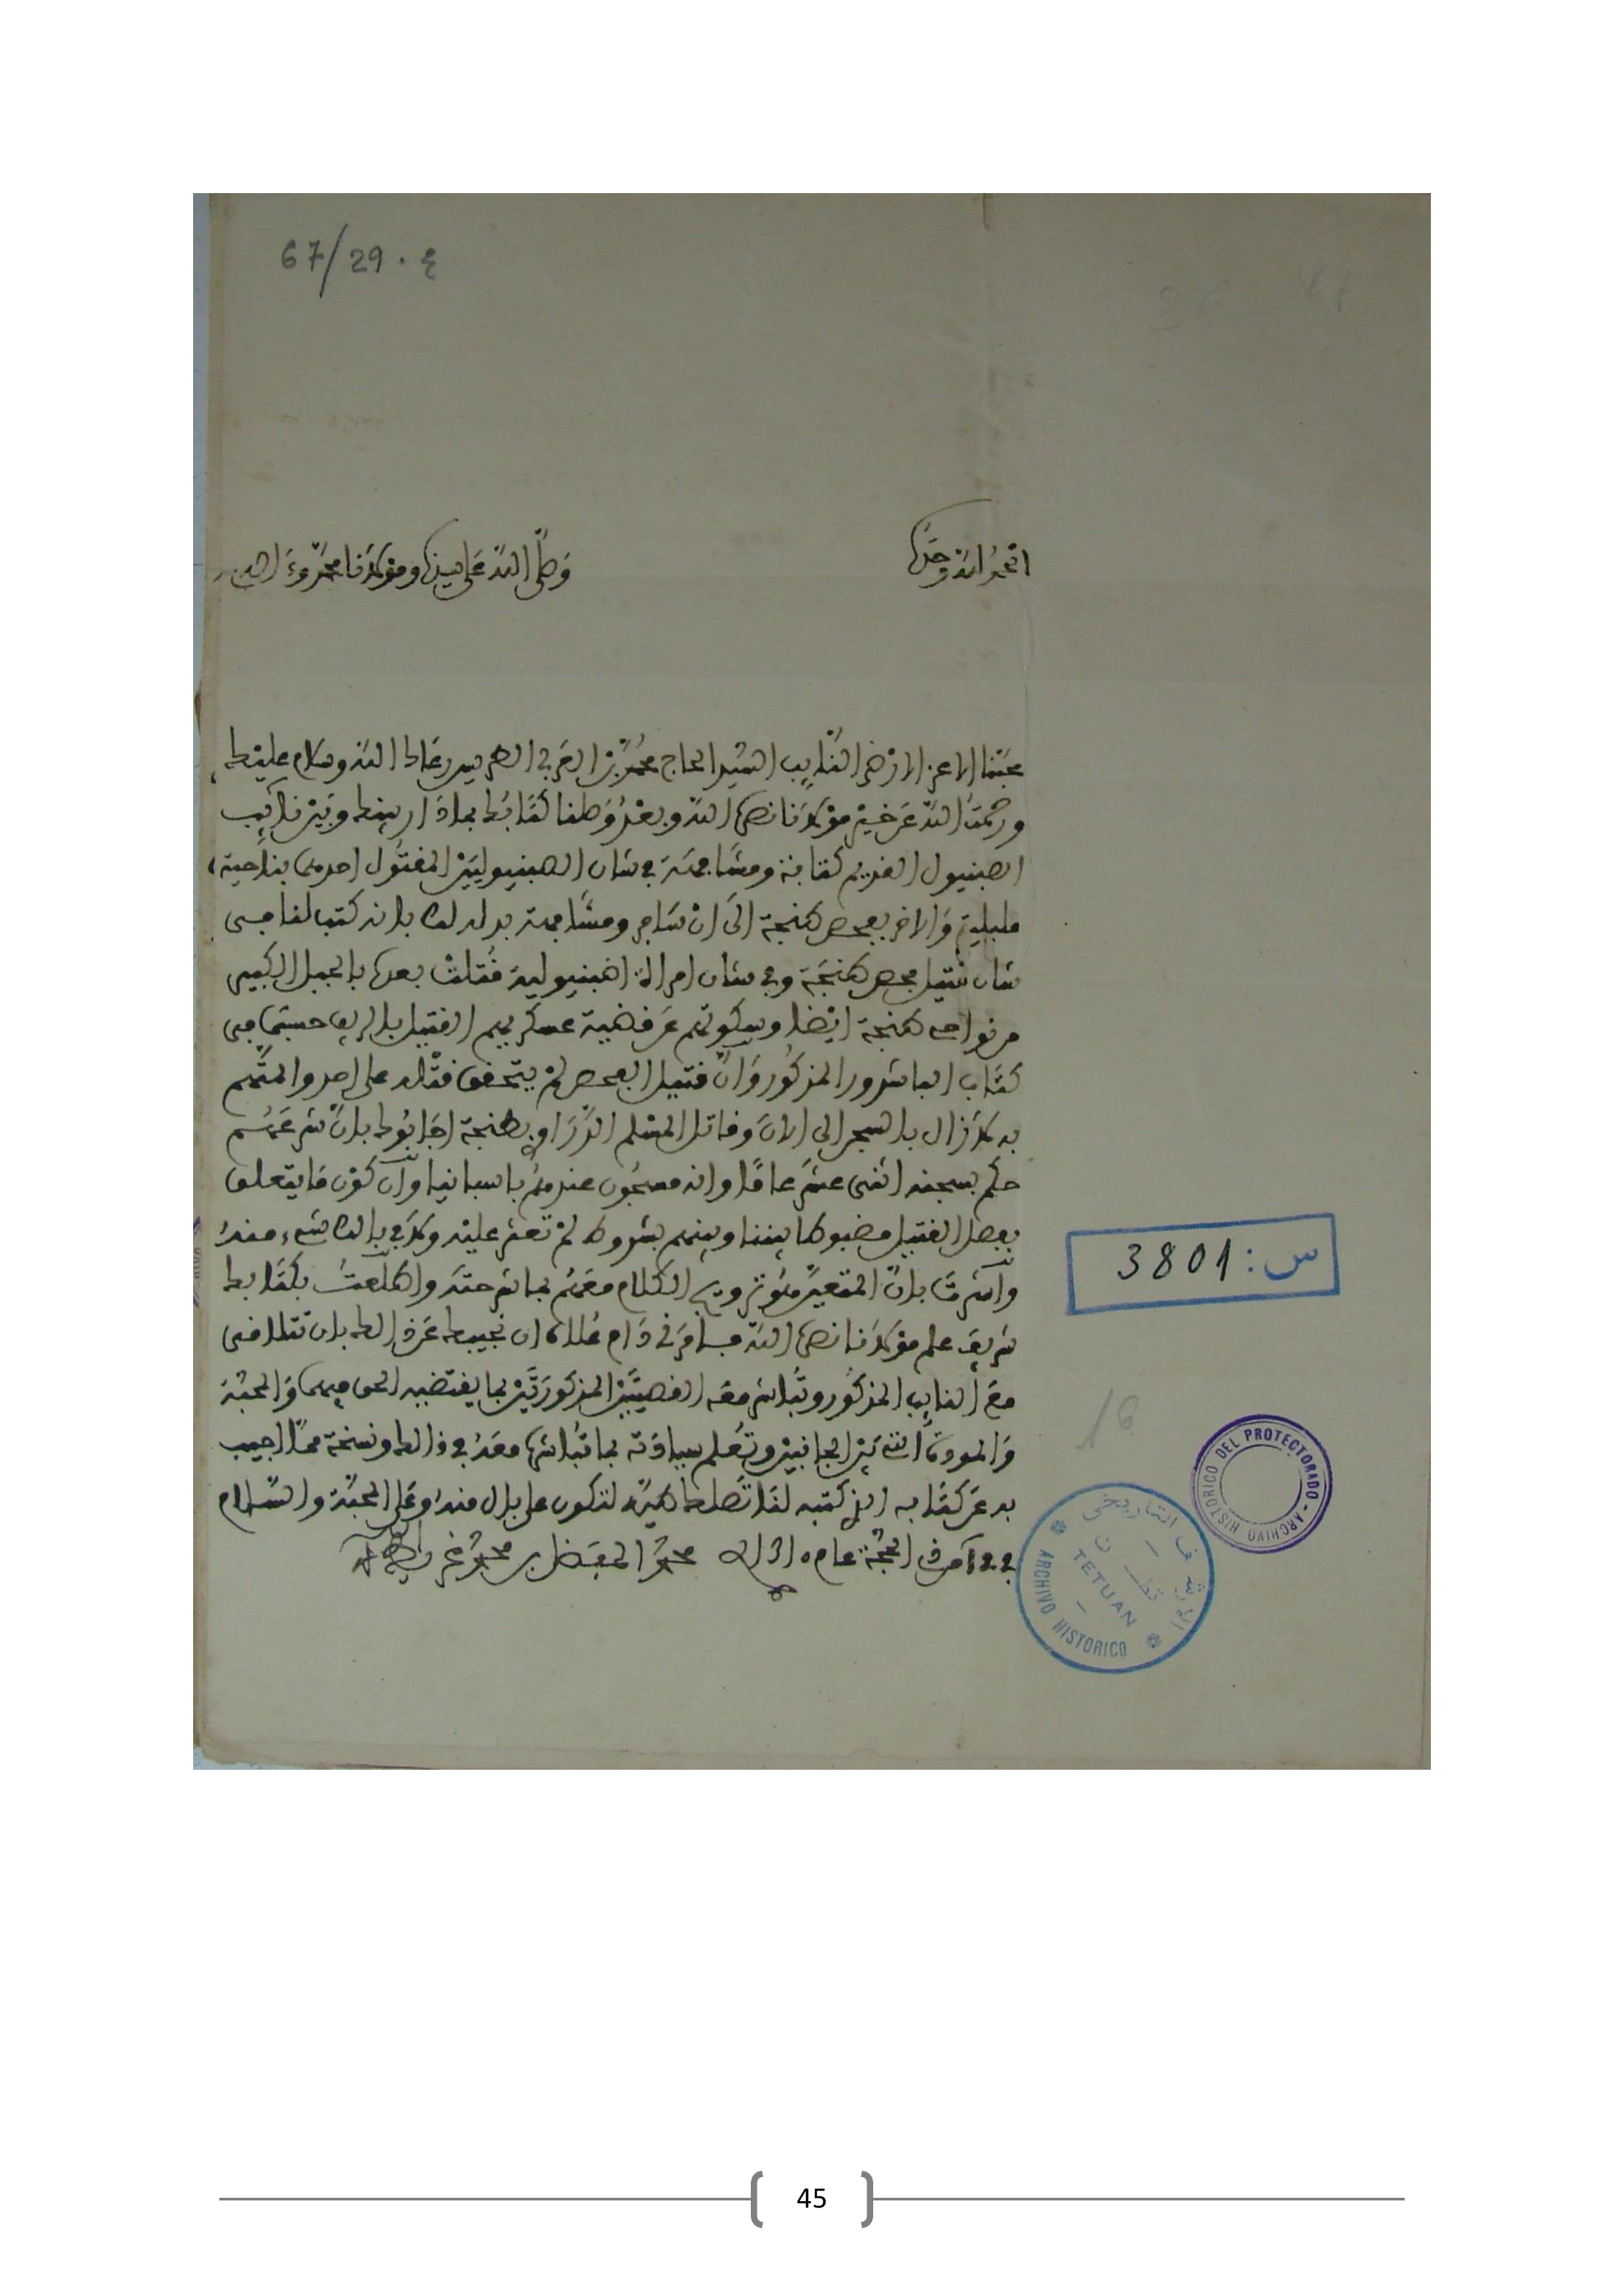 67/29 . ع
الحمد لله وحده
وصلى الله على سيدنا ومولانا محمد وءاله
محبنا الاعز الارضى النائب السيد الحاج محمد بن العربي الطريس رعاك الله وسلام عليك
ورحمت الله عن خير مولانا نصره الله وبعد وصلنا كتابك بما دار بينك وبين نائب
الصبنيول القديم كتابة ومشافهة في شان الصبنيوليين المقتول احدهما بناحية
مليلية والاخر بفحص طنجة الى ان سافر ومشافهة بدله لك بانه كتب لنا في
شان قتيل فحص طنجة وفي شان امراة اصبنيولية قتلت بعده بالجبل الكبير
من نواحي طنجة ايضا وسكوتهم عن قضية عسكريهم القتيل بالريف حسبما في
كتاب الباشدور المذكور وان قتيل الفحص لم يتحقق قتله على احد والمتهم
به لازال بالسجن الى الان وقاتل المسلم الدراوي بطنجة اجابوك بان شرعهم
حكم بسجنه اثنى عشر عاما وانه مسجون عندهم باسبانيا وان كون ما يتعلق
بفصل القتيل مضبوطا بيننا وبينهم بشروط لم تعثر عليه ولا في بالك شيء منه
واشرت بان المتعين هو ترويج الكلام معهم بما شرحته واطلعت بكتابك
شريف علم مولانا نصره الله فامرني دام علاه ان نجيبك عن ذلك بان تتلاقى
مع النايب المذكور وتباشر معه القضيتين المذكورتين بما يقتضيه الحق فيهما والمحبة
والمودة التي بين الجانبين وتعلم سيادته بما تباشره معه في ذلك ونسخة مما اجيب
به عن كتابه الذي كتبه لنا تصلك طيه لتكون على بال منه وعلى المحبة والسلام
في من ذي الحجة عام محمد المفضل بن محمد غريط
س : 3801
16
DEL PROTECTORADO - ARCHIVO HISTORICO
الارشيف التاريخي
تطوان
TETUAN
ARCHIVO HISTORICO
45